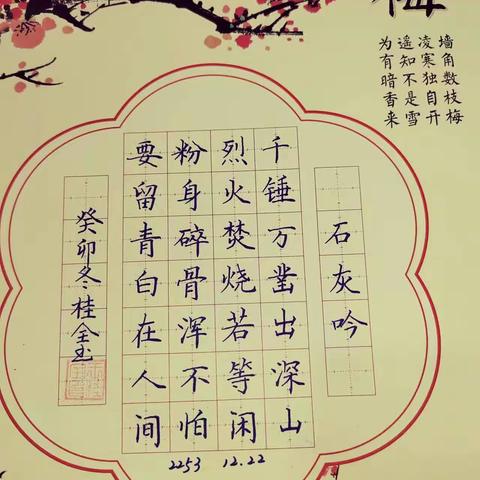 梅
墙角数枝梅
凌寒独自开
遥知不是雪
为有暗香来
石灰吟
千锤万凿出深山
烈火焚烧若等闲
粉身碎骨浑不怕
要留青白在人间
癸卯冬桂全玉
2253 12.22